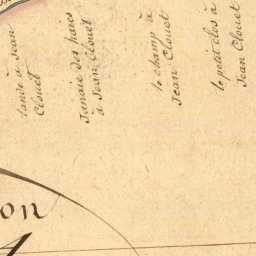 lande à Jean
Clouet
Janaie des haies
à Jean Clouet
le champ à
Jean Clouet
le petit clos à
Jean Clouet
on